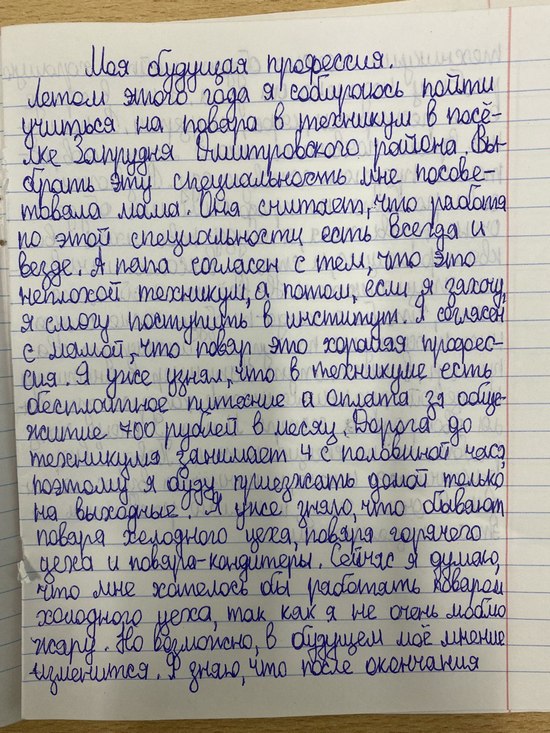 Моя будущая профессия.
Летом этого года я собираюсь пойти
учиться на повара в техникум в посё-
лке Запрудня Дмитровского района. Вы-
брать эту специальность мне посове-
товала мама. Она считает, что работа
по этой специальности есть всегда и
везде. А папа согласен с тем, что это
неплохой техникум, а, потом, если я захочу,
я смогу поступить в институт. Я согласен
с мамой, что повар это хорошая профес-
сия. Я уже узнал, что в техникуме есть
бесплатное питание а оплата за обще-
житие 700 рублей в месяц. Дорога до
техникума занимает 4 с половиной часа,
поэтому я буду приезжать домой только
на выходные. Я уже знаю, что бывают
повара холодного цеха, повара горячего
цеха и повара-кондитеры. Сейчас я думаю,
что мне хотелось бы работать поваром
холодного цеха, так как я не очень люблю
жару. Но возможно, в будущем моё мнение
изменится. Я знаю, что после окончания